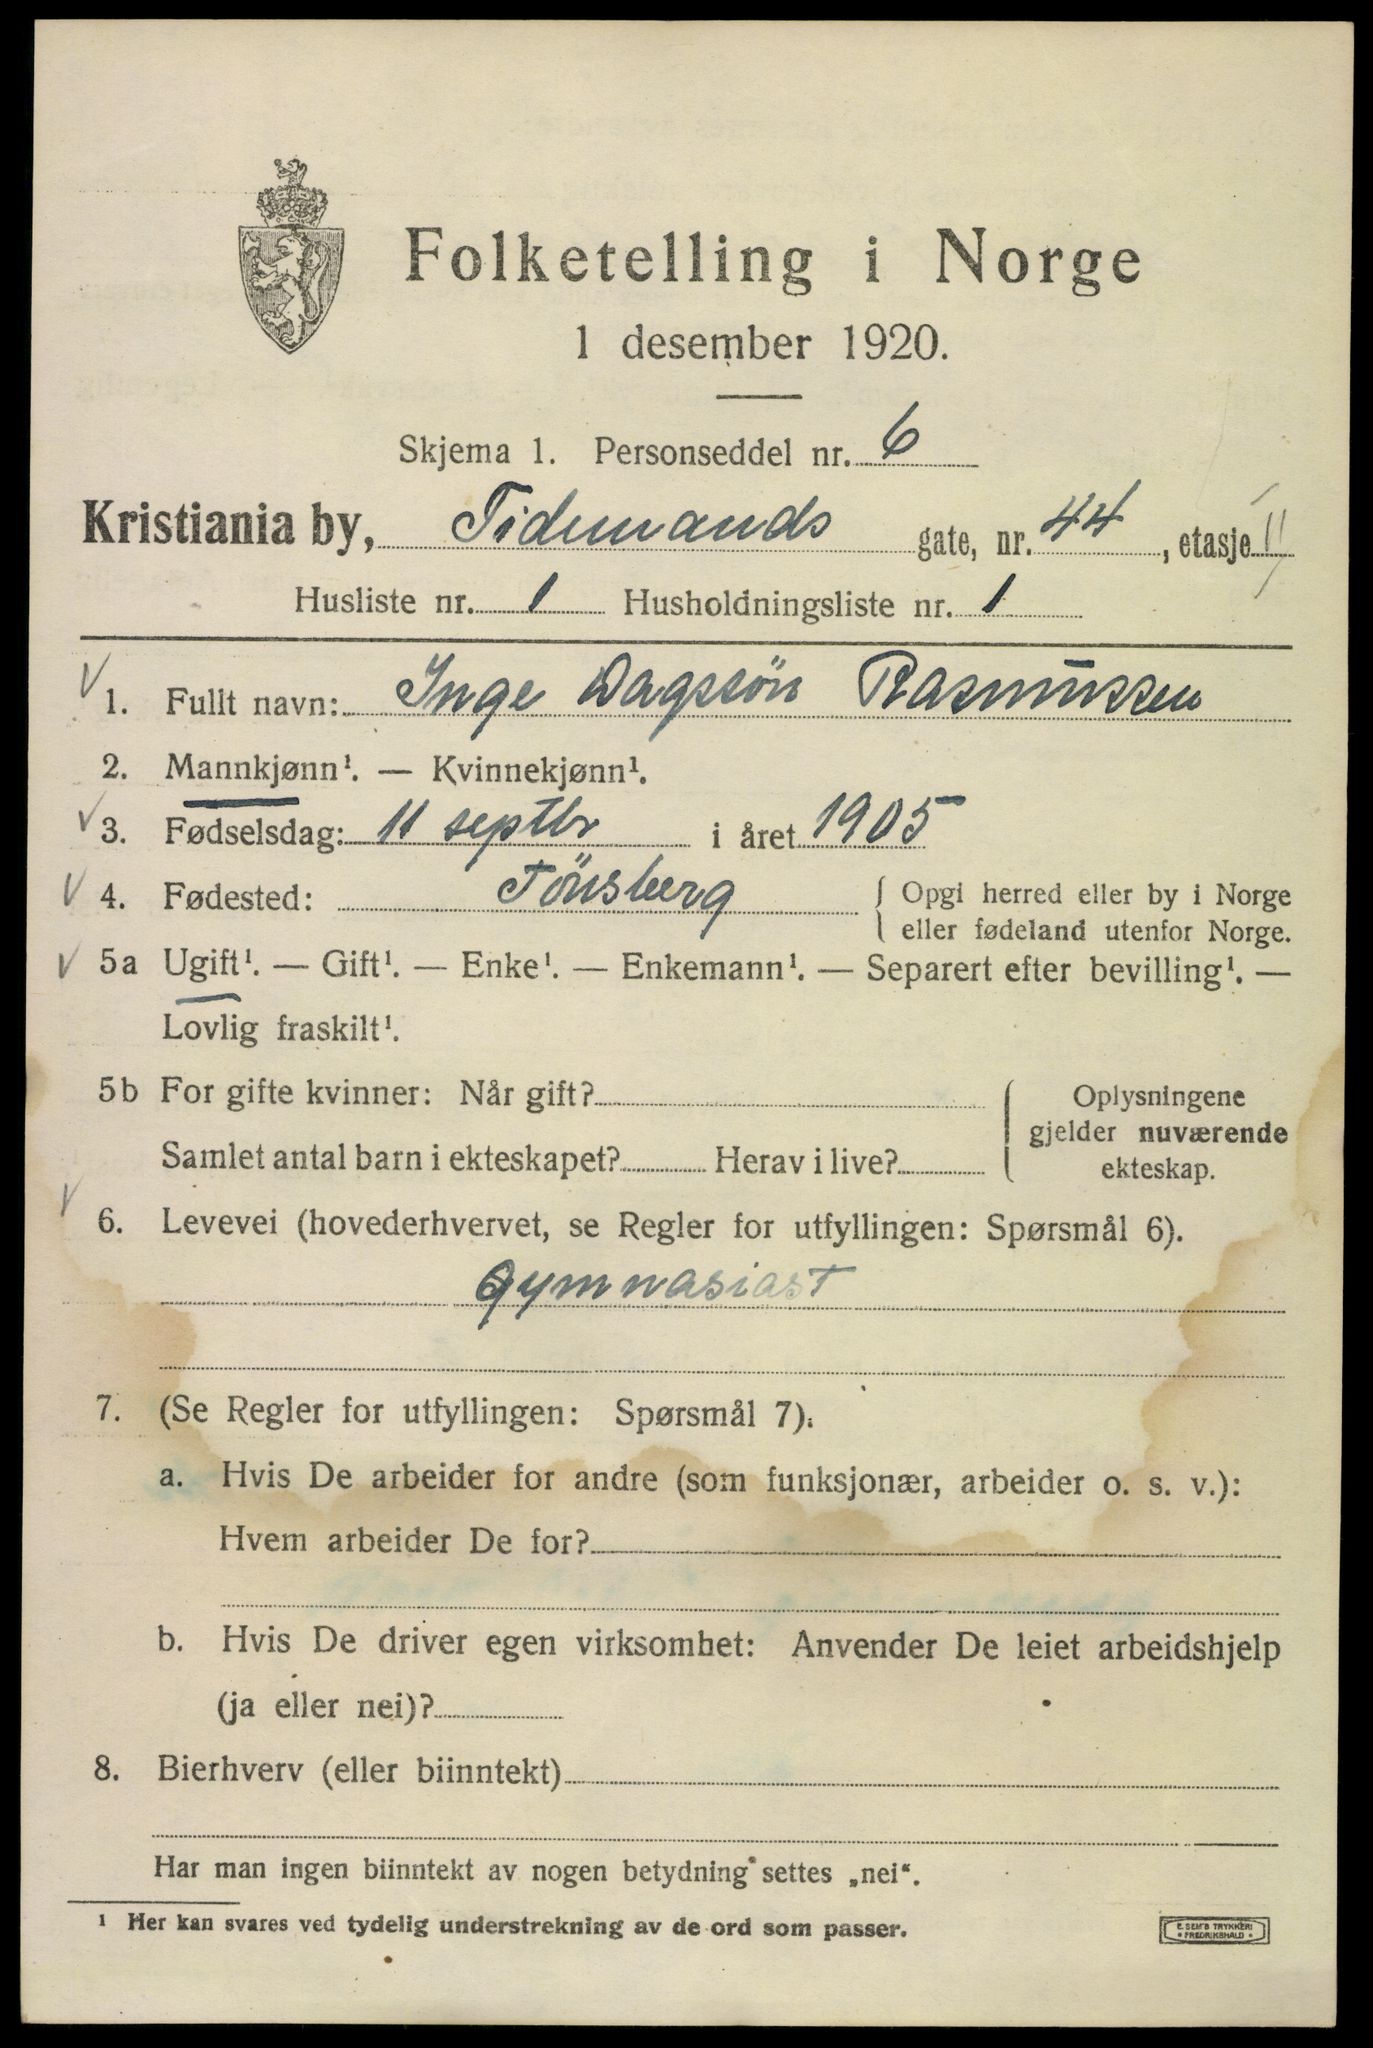 Folketelling i Norge
1 desember 1920.
Skjema 1. Personseddel nr. 6
Kristiania by, Tidemands gate, nr. 44, etasje II
Husliste nr. 1 Husholdningsliste nr. 1
1. Fullt navn: Inge Dagssön Rasmussen
2. Mannkjønn¹. — Kvinnekjønn¹.
3. Fødselsdag: 11 septbr i året 1905
4. Fødested: Tönsberg { Opgi herred eller by i Norge
eller fødeland utenfor Norge.
5a Ugift¹. — Gift¹. — Enke¹. — Enkemann¹. — Separert efter bevilling¹. —
Lovlig fraskilt¹.
5b For gifte kvinner: Når gift? { Oplysningene
gjelder nuværende
Samlet antal barn i ekteskapet? Herav i live? ekteskap.
6. Levevei (hovederhvervet, se Regler for utfyllingen: Spørsmål 6).
Gymnasiast
7. (Se Regler for utfyllingen: Spørsmål 7).
a. Hvis De arbeider for andre (som funksjonær, arbeider o. s. v.):
Hvem arbeider De for?
b. Hvis De driver egen virksomhet: Anvender De leiet arbeidshjelp
(ja eller nei)?
8. Bierhverv (eller biinntekt)
Har man ingen biinntekt av nogen betydning settes „nei“.
¹ Her kan svares ved tydelig understrekning av de ord som passer.
E. SEM'S TRYKKERI
• FREDRIKSHALD •